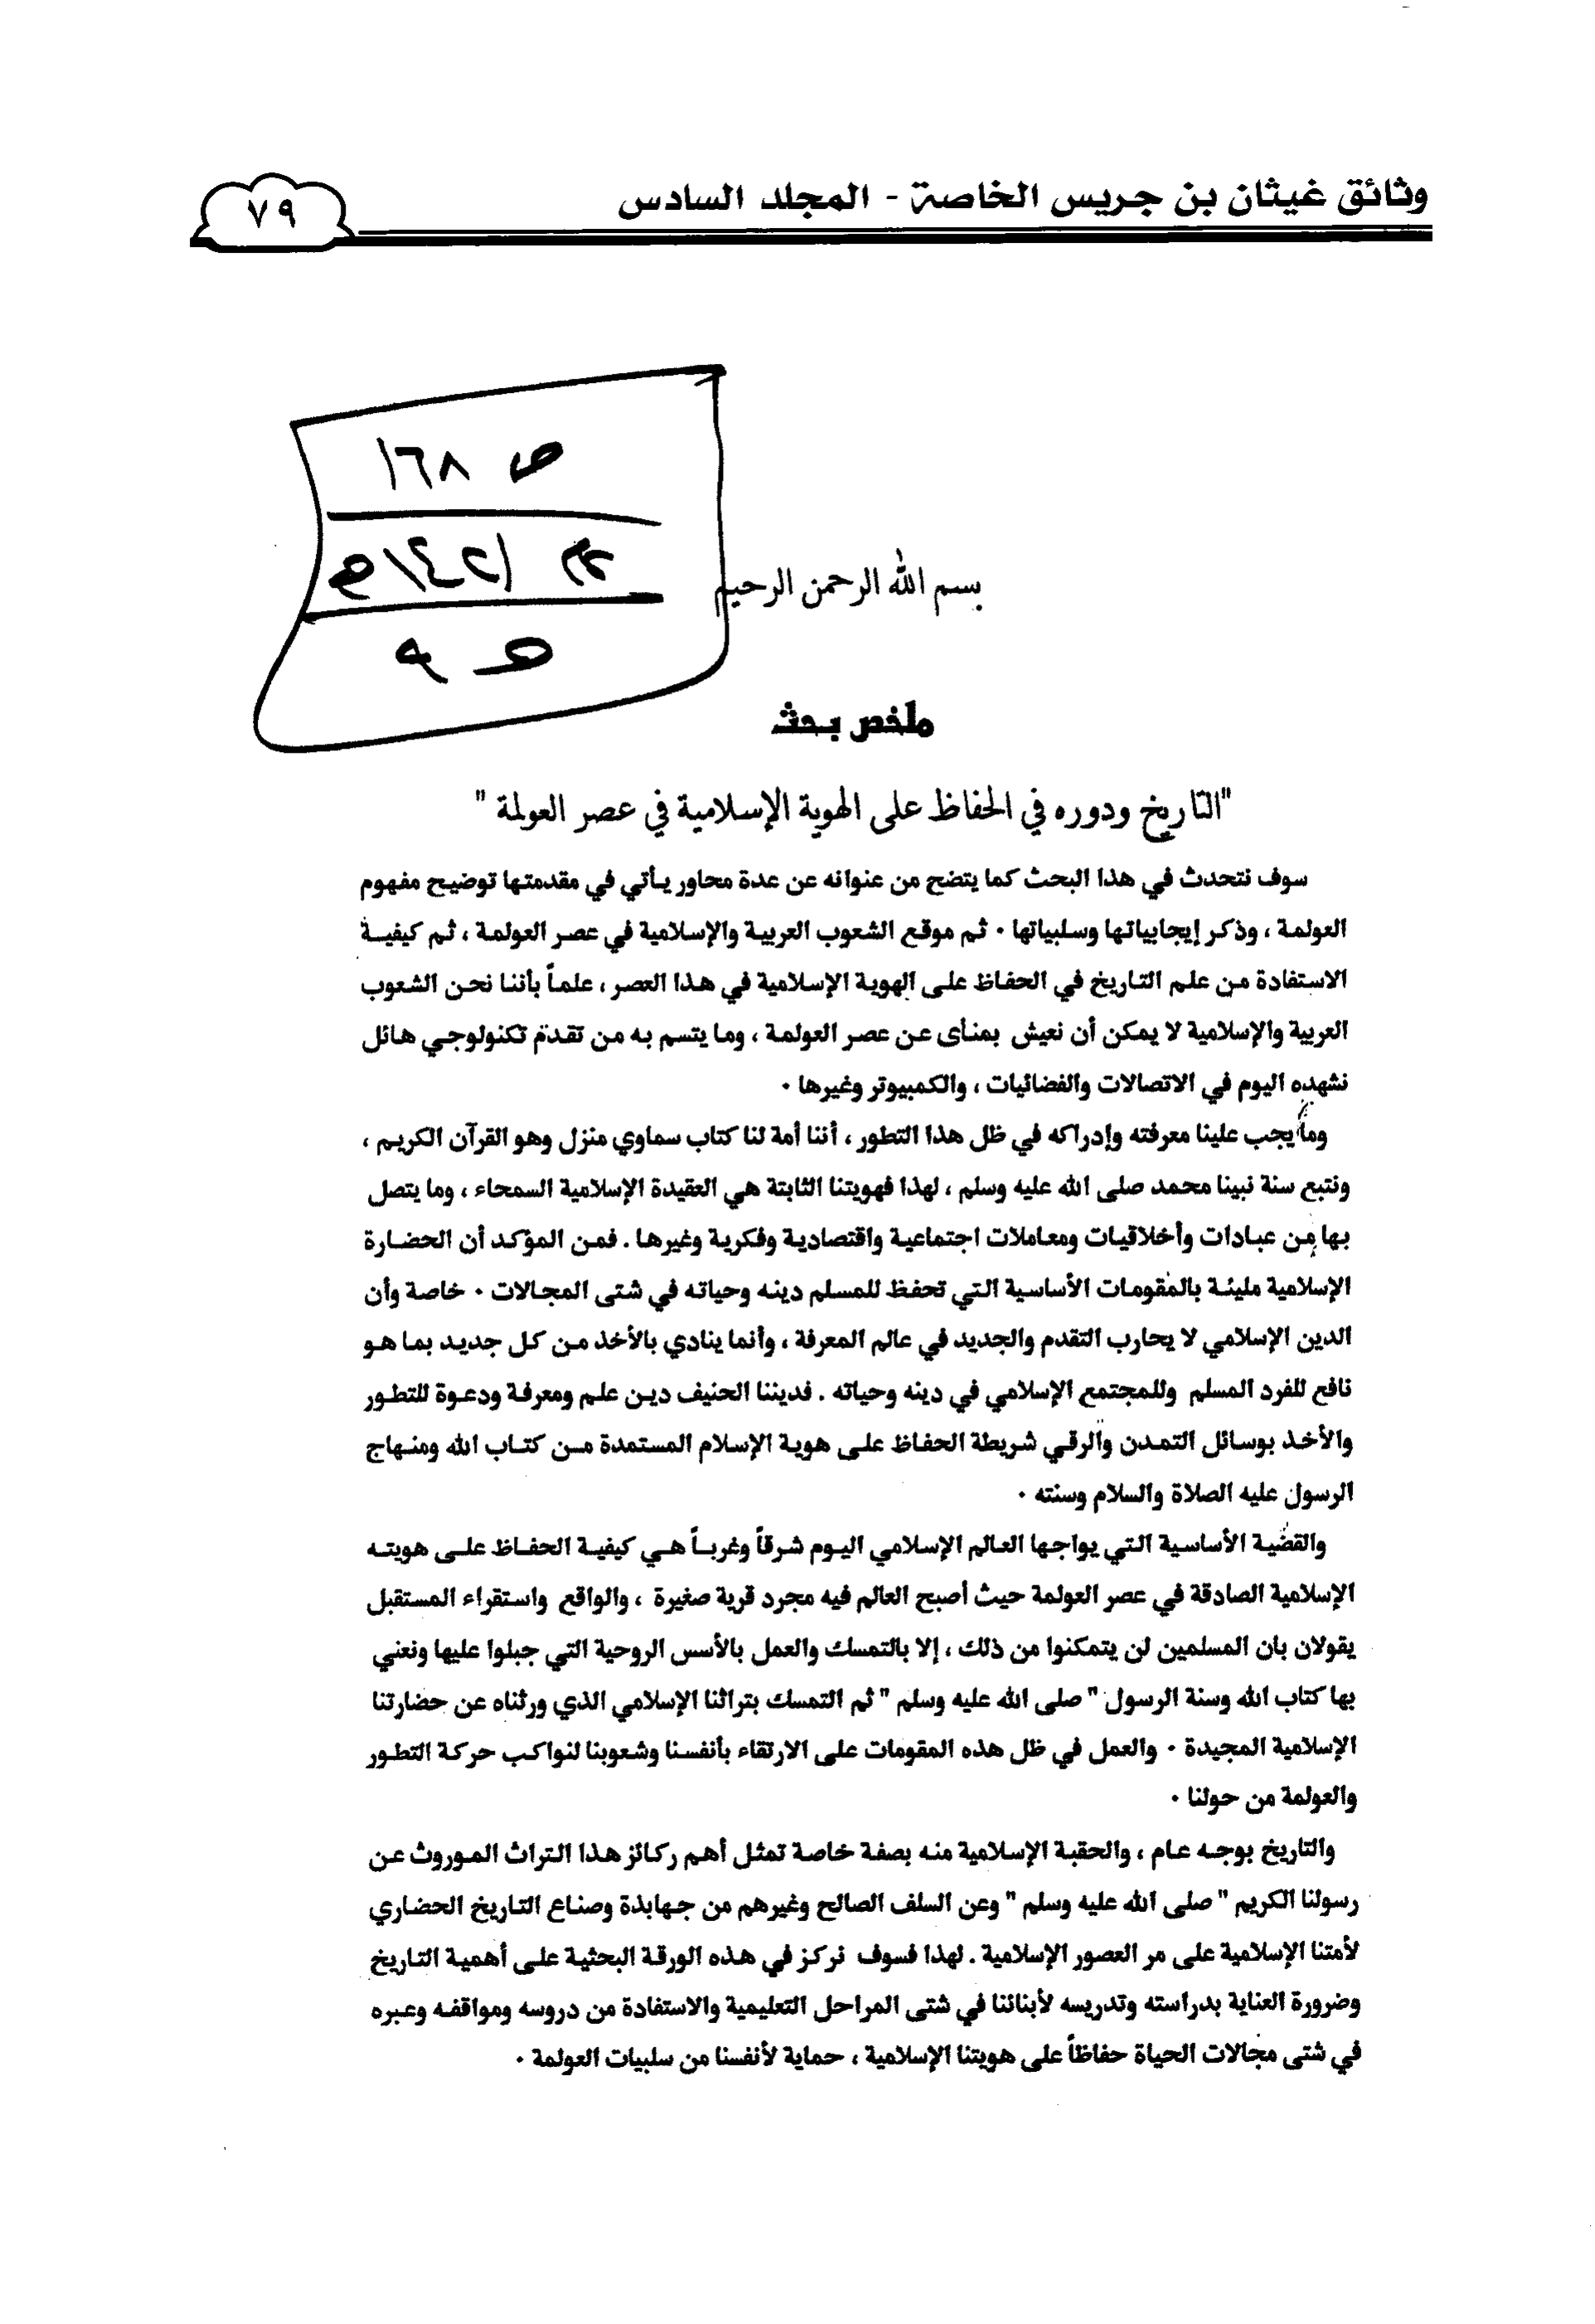 وثائق غيثان بن جريس الخاصة - المجلد السادس
٧٩
ص ١٦٨
بسم الله الرحمن الرحيم
ملخص بحث
"التاريخ ودوره في الحفاظ على الهوية الإسلامية في عصر العولمة "
سوف نتحدث في هذا البحث كما يتضح من عنوانه عن عدة محاور يأتي في مقدمتها توضيح مفهوم
العولمة ، وذكر إيجابياتها وسلبياتها ٠ ثم موقع الشعوب العربية والإسلامية في عصر العولمة ، ثم كيفية
الاستفادة من علم التاريخ في الحفاظ على الهوية الإسلامية في هذا العصر ، علماً بأننا نحن الشعوب
العربية والإسلامية لا يمكن أن نعيش بمنأى عن عصر العولمة ، وما يتسم به من تقدم تكنولوجي هائل
نشهده اليوم في الاتصالات والفضائيات ، والكمبيوتر وغيرها ٠
وما يجب علينا معرفته وإدراكه في ظل هذا التطور ، أننا أمة لنا كتاب سماوي منزل وهو القرآن الكريم ،
ونتبع سنة نبينا محمد صلى الله عليه وسلم ، لهذا فهويتنا الثابتة هي العقيدة الإسلامية السمحاء ، وما يتصل
بها من عبادات وأخلاقيات ومعاملات اجتماعية واقتصادية وفكرية وغيرها . فمن المؤكد أن الحضارة
الإسلامية مليئة بالمقومات الأساسية التي تحفظ للمسلم دينه وحياته في شتى المجالات ٠ خاصة وأن
الدين الإسلامي لا يحارب التقدم والجديد في عالم المعرفة ، وأنما ينادي بالأخذ من كل جديد بما هو
نافع للفرد المسلم وللمجتمع الإسلامي في دينه وحياته . فديننا الحنيف دين علم ومعرفة ودعوة للتطور
والأخذ بوسائل التمدن والرقي شريطة الحفاظ على هوية الإسلام المستمدة من كتاب الله ومنهاج
الرسول عليه الصلاة والسلام وسنته ٠
والقضية الأساسية التي يواجها العالم الإسلامي اليوم شرقاً وغرباً هي كيفية الحفاظ على هويته
الإسلامية الصادقة في عصر العولمة حيث أصبح العالم فيه مجرد قرية صغيرة ، والواقع واستقراء المستقبل
يقولان بان المسلمين لن يتمكنوا من ذلك ، إلا بالتمسك والعمل بالأسس الروحية التي جبلوا عليها ونعني
بها كتاب الله وسنة الرسول " صلى الله عليه وسلم " ثم التمسك بتراثنا الإسلامي الذي ورثناه عن حضارتنا
الإسلامية المجيدة ٠ والعمل في ظل هذه المقومات على الارتقاء بأنفسنا وشعوبنا لنواكب حركة التطور
والعولمة من حولنا ٠
والتاريخ بوجه عام ، والحقبة الإسلامية منه بصفة خاصة تمثل أهم ركائز هذا التراث الموروث عن
رسولنا الكريم " صلى الله عليه وسلم " وعن السلف الصالح وغيرهم من جهابذة وصناع التاريخ الحضاري
لأمتنا الإسلامية على مر العصور الإسلامية . لهذا فسوف نركز في هذه الورقة البحثية على أهمية التاريخ
وضرورة العناية بدراسته وتدريسه لأبنائنا في شتى المراحل التعليمية والاستفادة من دروسه ومواقفه وعبره
في شتى مجالات الحياة حفاظاً على هويتنا الإسلامية ، حماية لأنفسنا من سلبيات العولمة ٠